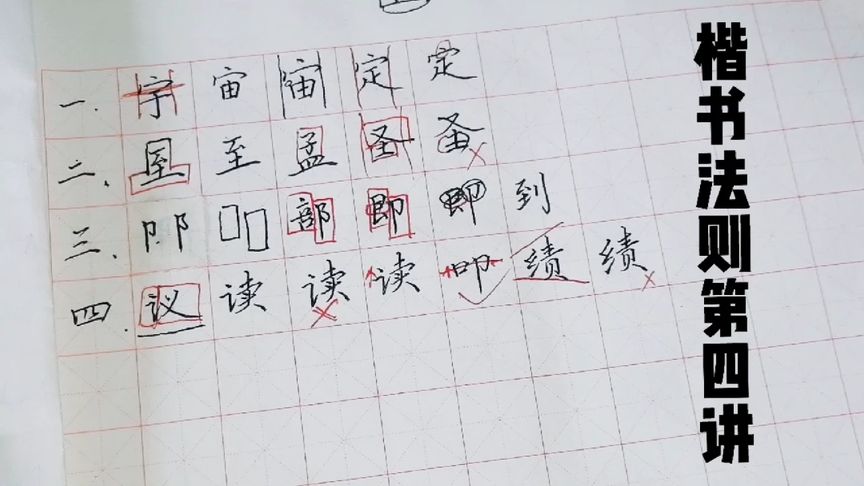 一、宇宙宙定定
二、至至孟蚤蚤
三、卩阝部即即到
四、议读读读叩绩绩
楷书法则第四讲